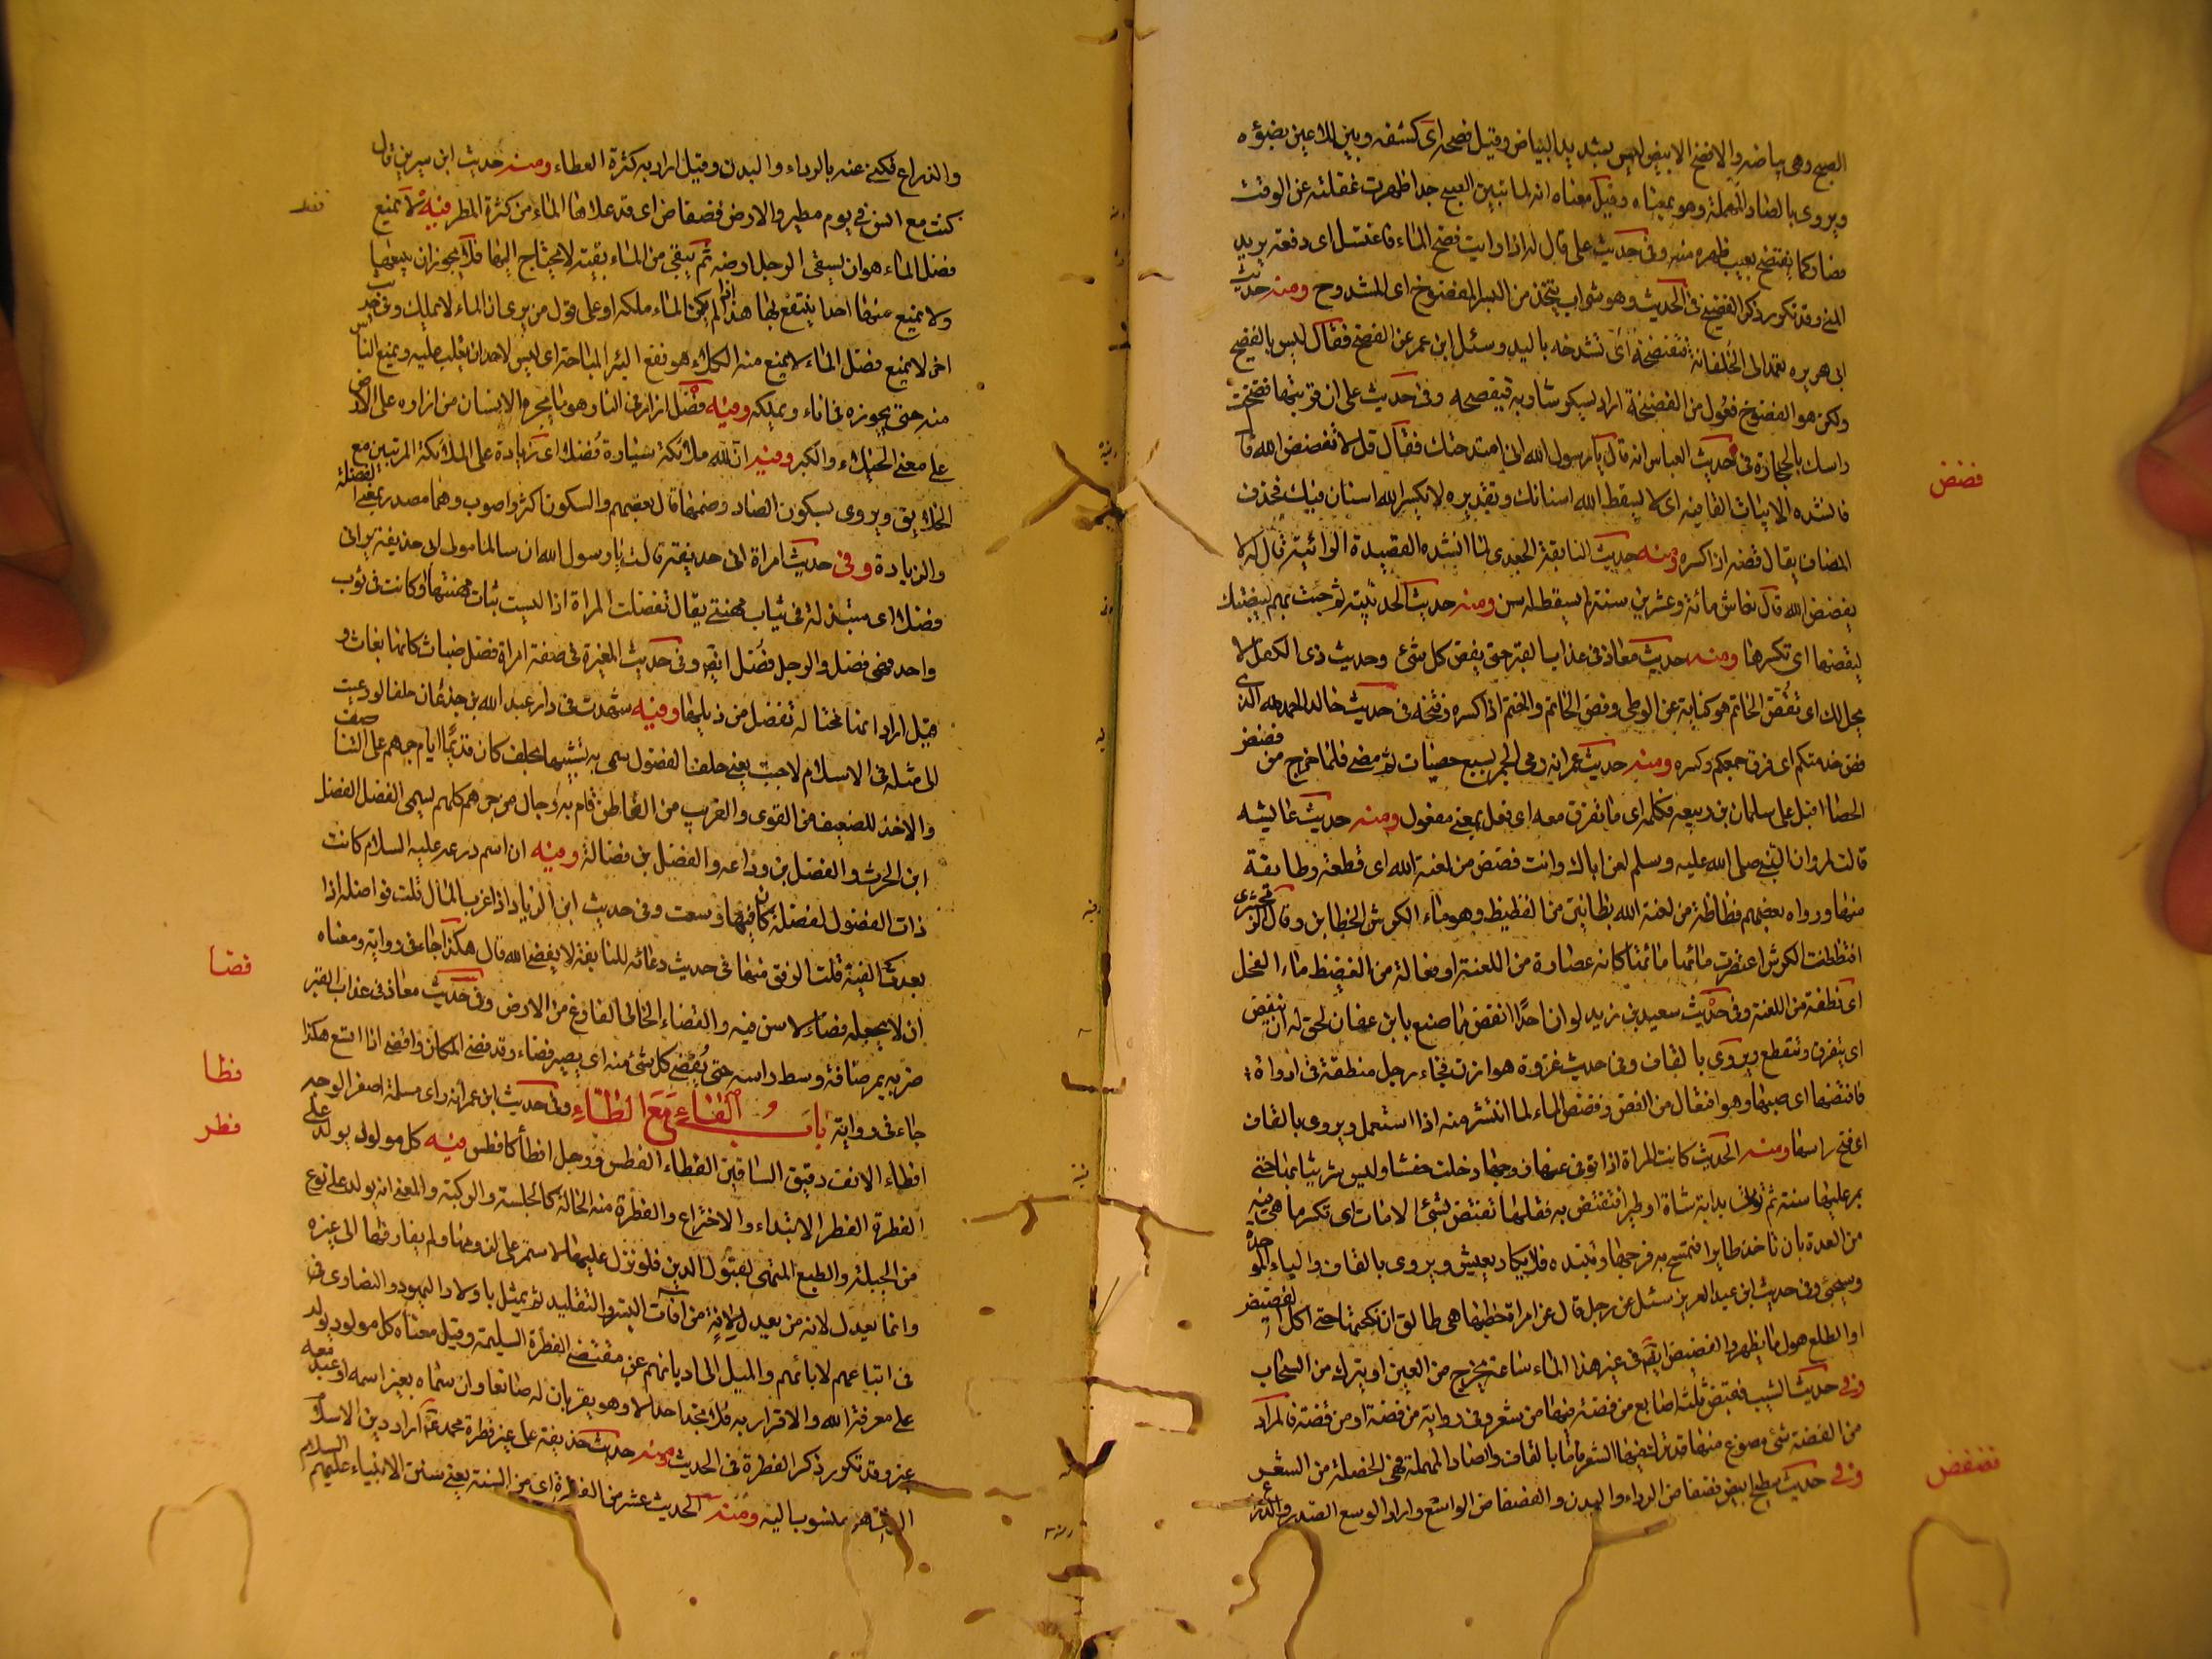 الصبح وهى بياضه والافضح الابيض ليس بشديد البياض وقيل فضحه اى كشفه وبينه للاعين بضوءه
ويروى بالصاد المهملة وهو بمعناه وقيل معناه انه لما تبين الصبح جدا ظهرت غفلته عن الوقت
فصار كما يفتضح بعيب ظهر منه وفى حديث على قال له اذا رايت فضخ الماء فاغتسل اى دفعه يريد
المنى وقد تكرر ذكر الفضيخ فى الحديث وهو شراب يتخذ من البسر المفضوخ اى المشدوخ ومنه حديث
ابى هريره نعمد الى الحلقانة فنفتضخه اى نشدخه باليد وسئل ابن عمر عن الفضيخ فقال ليس بالفضيخ
ولكن هو الفضوخ فعول من الفضيخة اراد يسكر شاربه فيفضحه وفى حديث على ان قربتها فضخت
راسك بالحجارة فى حديث العباس انه قال يا رسول الله انى امتدحتك فقال قل لا يفضض الله فاك
فانشده الابيات القافية اى لا يسقط الله اسنانك وتقديره لا يكسر الله اسنان فيك فحذف
المضاف يقال فضه اذا كسره ومنه حديث النابغة الجعدى لما انشده القصيدة الرائية قال له لا
يفضض الله فاك فعاش مائة وعشرين سنة لم يسقط له سن ومنه حديث الحديبية ثم جئت بهم لبيضتك
لتفضها اى تكسرها ومنه حديث معاذ فى عذاب القبر حتى يفض كل شئ وحديث ذى الكفل لا
يحل لك ان تفض الخاتم هو كناية عن الوطى وفض الخاتم والختم اذا كسره وفتحه فى حديث خالد الحمد لله الذى
فض خدمتكم اى فرق جمعكم وكسره ومنه حديث عمر انه رمى الجمرة بسبع حصيات ثم مضى فلما خرج من فضض
الحصا اقبل على سلمان بن ربيعه فكلمه اى ما تفرق منه اى فعل بمعنى مفعول ومنه حديث عايشه
قالت لمروان ان النبى صلى الله عليه وسلم لعن اباك وانت فضض من لعنة الله اى قطعة وطائفة
منها ورواه بعضهم فظاظة من لعنة الله بظائين من الفظيظ وهو ماء الكرش الخطابى وقال الزمخشرى
افتظظت الكرش اعتصرت ماءها كانه عصارة من اللعنة او فعالة من الفظيظ ماء الفحل
اى نطفة من اللعنة وفى حديث سعيد بن زيد لو ان احدا انفض مما صنع بابن عفان لحق له ان ينفض
اى يتفرق ويتقطع ويروى بالقاف وفى حديث غزوة هوازن فجاء رجل بنطفة فى اداوة
فافتضها اى صبها وهو افتعال من الفض وفضض الماء لما انتشر منه اذا استعمل ويروى بالقاف
اى فتح راسها ومنه الحديث كانت المراة اذا توفى عنها زوجها دخلت حفشا ولبست شر ثيابها حتى
يمر عليها سنة ثم تؤتى بدابة شاة او طير فتفتض به فقلما تفتض بشئ الا مات اى تكسر ما هى فيه
من العدة بان تاخذ طايرا فتمسح به فرجها وتنبذه فلا يكاد يعيش ويروى بالقاف والباء الموحدة
وسيجئ وفى حديث ابن عبد العزيز سئل عن رجل قال عن امراة خطبها هى طالق ان نكحتها حتى اكل الفضيض
او الطلع هو اول ما يظهر والفضيض ايضا فى غير هذا الماء ساعة يخرج من العين او ينزل من السحاب
وفى حديث الشيب فقبض ثلثة اصابع من فضة فيها من شعر وفى رواية من فضة او من قصة فالمراد
من الفضة شئ مصوغ منها قد ترك فيها الشعر فاما بالقاف والصاد المهملة فهى الخصلة من الشعر
وفى حديث سطيح ابيض فضفاض الرداء والبدن والفضفاض الواسع واراد الوسع الصدر والذراع
فضض
فضفض
والذراع فكنى عنه بالرداء والبدن وقيل اراد به كثرة العطاء ومنه حديث ابن سيرين قال
كنت مع انس فى يوم مطير والارض فضفاض اى قد علاها الماء من كثرة المطر فيه لا يمنع
فضل الماء هو ان يسقى الرجل ارضه ثم يبقى من الماء بقية لا يحتاج اليها فلا يجوز ان يبيعها
ولا يمنع منها احدا ينتفع بها هذا اذا لم يكن الماء ملكه او على قول من يرى ان الماء لا يملك وفى حديث
اخر لا يمنع فضل الماء ليمنع منه الكلاء هو نقع البئر المباحة اى ليس لاحد ان يغلب عليه ويمنع الناس
منه حتى يحوزه فى اناء ويملكه ومنه فضل الازار فى النار وهو ما يجره الانسان من ازاره على الارض
على معنى الخيلاء والكبر ومنه ان لله ملائكة سيارة فضلا اى زيادة على الملائكة المرتبين مع
الخلايق ويروى بسكون الضاد وضمها قال بعضهم والسكون اكثر واصوب وهما مصدر بمعنى الفضلة
والزيادة وفى حديث امراة ابى حذيفة قالت يا رسول الله ان سالما مولى ابى حذيفة يرانى
فضلا اى متبذلة فى ثياب مهنتى يقال تفضلت المراة اذا لبست ثياب مهنتها او كانت فى ثوب
واحد فهى فضل والرجل فضل ايضا وفى حديث المغيرة فى صفة امراة فضل ضباث كانها بغاث و
قيل اراد انها مختالة تفضل من ذيلها وفيه شهدت فى دار عبد الله بن جدعان حلفا لو دعيت
الى مثله فى الاسلام لاجبت يعنى حلف الفضول سمى به تشبيها بحلف كان قديما ايام جرهم على التناصف
والاخذ للضعيف من القوى والغريب من القاطن قام به رجال من جرهم كلهم يسمى الفضل الفضل
ابن الحرث والفضل بن وداعه والفضل بن فضالة ومنه ان اسم درعه عليه السلام كانت
ذات الفضول لفضلة كان فيها وسعت وفى حديث ابن ابى الزياد اذا عزب المال قلت فواضله اى اذا
بعدت الضيعة قلت الرفق منها فى حديث دعائه للنابغة لا يفضى الله فاك هكذا جاء فى رواية ومعناه
ان لا يجعله فضاء لا سن فيه والفضاء الخالى الفارغ من الارض وفى حديث معاذ فى عذاب القبر
ضربه بمرضافة وسط راسه حتى يفضى كل شئ منه اى يصير فضاء وقد فضى المكان وافضى اذا اتسع هكذا
جاء فى رواية باب الفاء مع الظاء وفى حديث ابن عمر انه راى مسلمة اصفر الوجه
افطاء الانف دقيق الساقين الفطاء الفطس ورجل افطأ كافطس فيه كل مولود يولد على
الفطرة الفطر الابتداء والاختراع والفطرة منه الحالة كالجلسة والركبة والمعنى انه يولد على نوع
من الجبلة والطبع المتهئ لقبول الدين فلو نزل عليها لاستمر على لزومها ولم يفارقها الى غيره
وانما يعدل لانه من يعدل لآفة من آفات البشر والتقليد ثم يمثل باولاد اليهود والنصارى فى
فى اتباعهم لابائهم والميل الى اديانهم عن مقتضى الفطرة السليمة وقيل معناه كل مولود يولد
على معرفة الله والاقرار به فلا تجد احدا الا وهو يقر بان له صانعا وان سماه بغير اسمه او عبد معه
غيره وقد تكرر ذكر الفطرة فى الحديث ومنه حديث حذيفة على غير فطرة محمد اراد دين الاسلام
الذى هو منسوب اليه ومنه الحديث عشر من الفطرة اى من السنة يعنى سنن الانبياء عليهم السلام
فضل
فضا
فظا
فطر